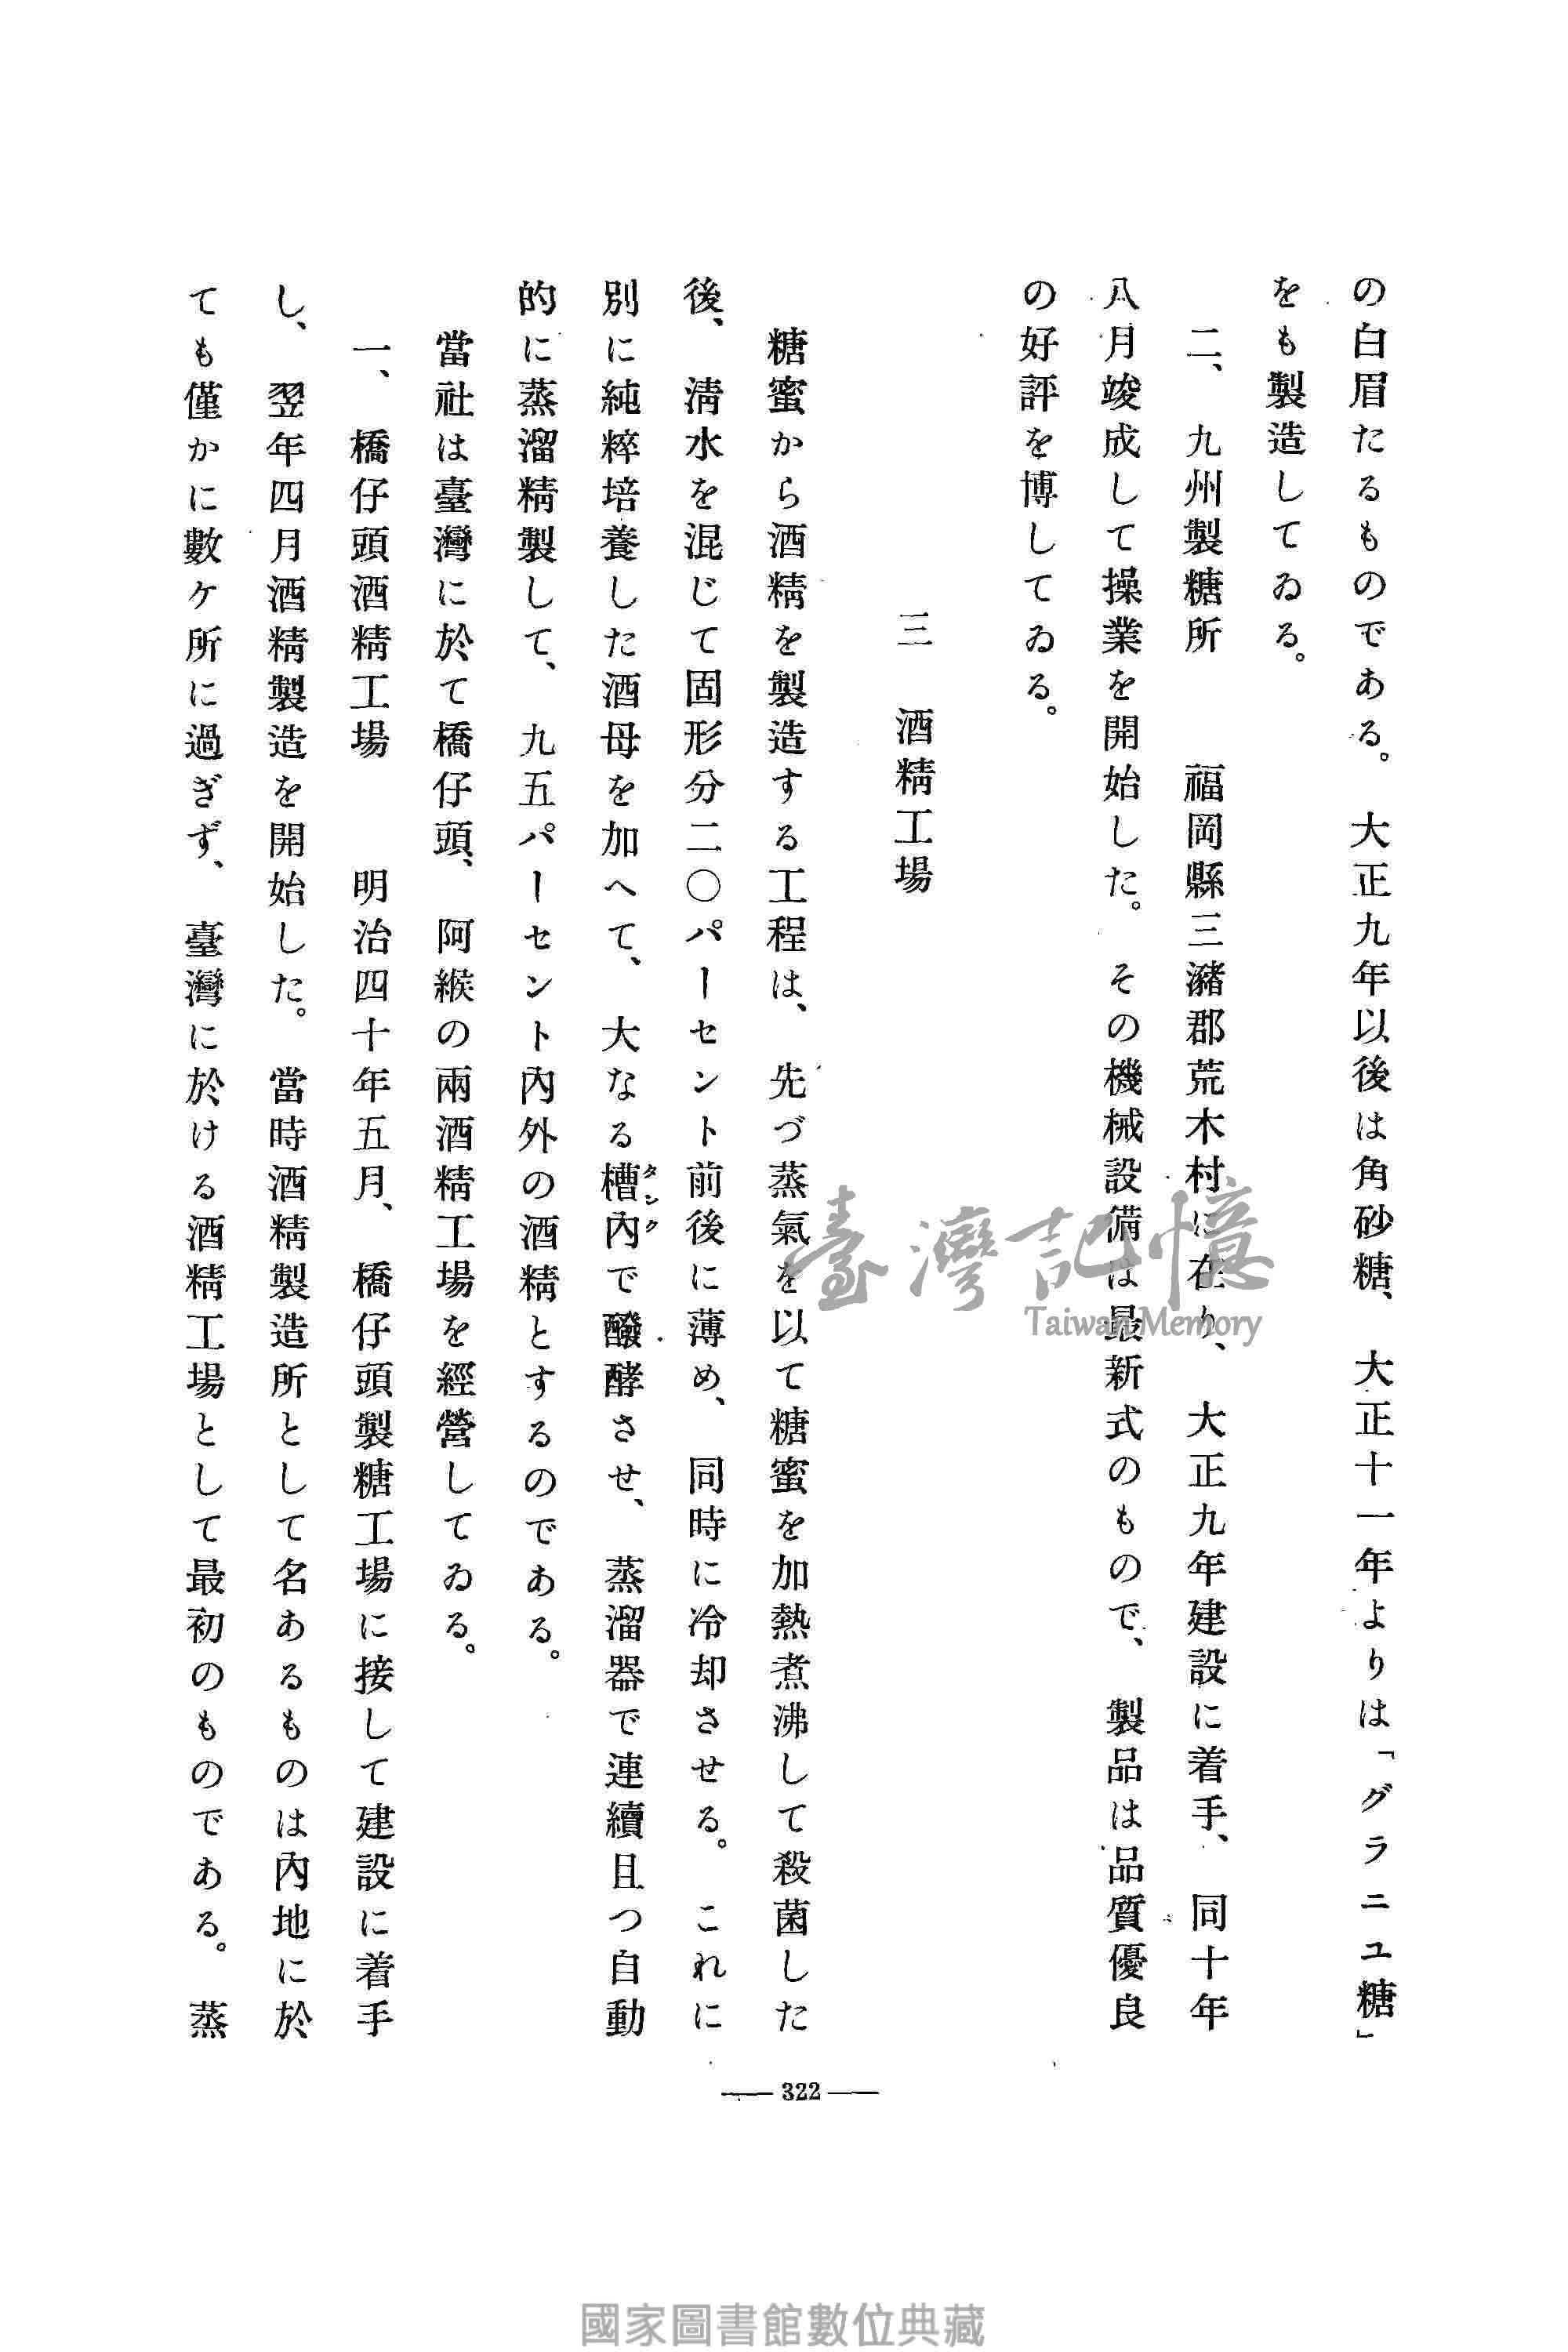 の白眉たるものである。大正九年以後は角砂糖、大正十一年よりは「グラニユ糖」
をも製造してゐる。
二、九州製糖所　福岡縣三瀦郡荒木村に在り、大正九年建設に着手、同十年
八月竣成して操業を開始した。その機械設備は最新式のもので、製品は品質優良
の好評を博してゐる。
三　酒精工場
糖蜜から酒精を製造する工程は、先づ蒸氣を以て糖蜜を加熱煮沸して殺菌した
後、清水を混じて固形分二〇パーセント前後に薄め、同時に冷却させる。これに
別に純粹培養した酒母を加へて、大なる槽內で醱酵させ、蒸溜器で連續且つ自動
タンク
的に蒸溜精製して、九五パーセント內外の酒精とするのである。
當社は臺灣に於て橋仔頭、阿緱の兩酒精工場を經營してゐる。
一、橋仔頭酒精工場　明治四十年五月、橋仔頭製糖工場に接して建設に着手
し、翌年四月酒精製造を開始した。當時酒精製造所として名あるものは內地に於
ても僅かに數ケ所に過ぎず、臺灣に於ける酒精工場として最初のものである。蒸
322
臺灣記憶
Taiwan Memory
國家圖書館數位典藏